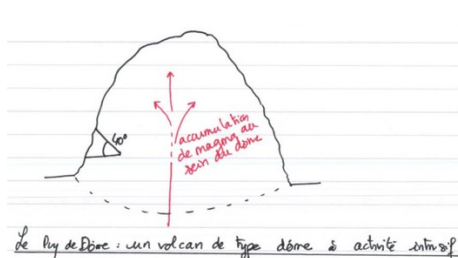 40°
accumulation
de magma au
sein du dôme
Le Puy de Dôme : un volcan de type dôme à activité intrusif